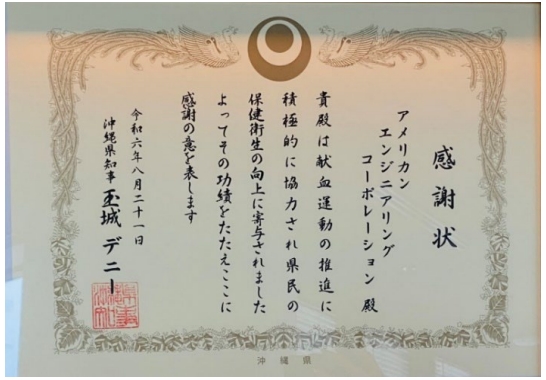 感謝状
アメリカン
エンジニアリング
コーポレーション 殿
貴殿は献血運動の推進に
積極的に協力され県民の
保健衛生の向上に寄与されました
よってその功績をたたえここに
感謝の意を表します
令和六年八月二十一日
沖縄県知事 玉城 デニー
沖縄県